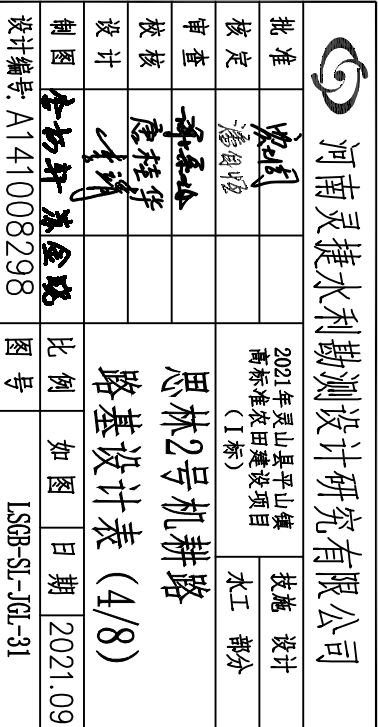 河南灵捷水利勘测设计研究有限公司
批准
核定
审查
校核
设计
制图
2021年灵山县平山镇
高标准农田建设项目
(I标)
技施 设计
水工 部分
思林2号机耕路
路基设计表 (4/8)
比例 如图 日期 2021.09
设计编号: A141008298 图号 LSGB-SL-JGL-31